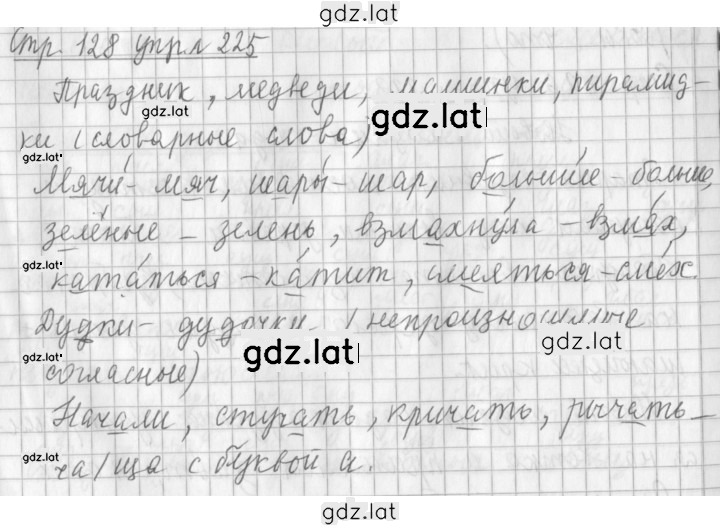 gdz.lat
Стр. 128 упр. 225
Праздник, медведи, машинки, пирамид-
gdz.lat
gdz.lat
ки (словарные слова)
gdz.lat
Мячи́ - мяч, шары́ - шар, больши́е - больше,
зелёные - зелень, взмахну́ла - взма́х,
gdz.lat
ката́ться - ка́тит, смеяться - смех.
Дудки - дудочки. (непроизносимые
gdz.lat
gdz.lat
gdz.lat
согласные)
Начали, стучать, кричать, рычать -
gdz.lat
ча/ща с буквой а.
gdz.lat